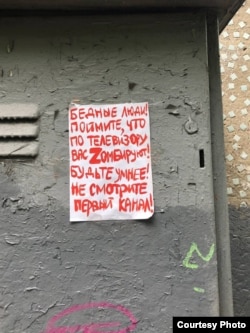 БЕДНЫЕ ЛЮДИ!
ПОЙМИТЕ, ЧТО
ПО ТЕЛЕВИЗОРУ
ВАС ZОМБИРУЮТ!
БУДЬТЕ УМНЕЕ!
НЕ СМОТРИТЕ
ПЕРВЫЙ КАНАЛ!
Courtesy Photo